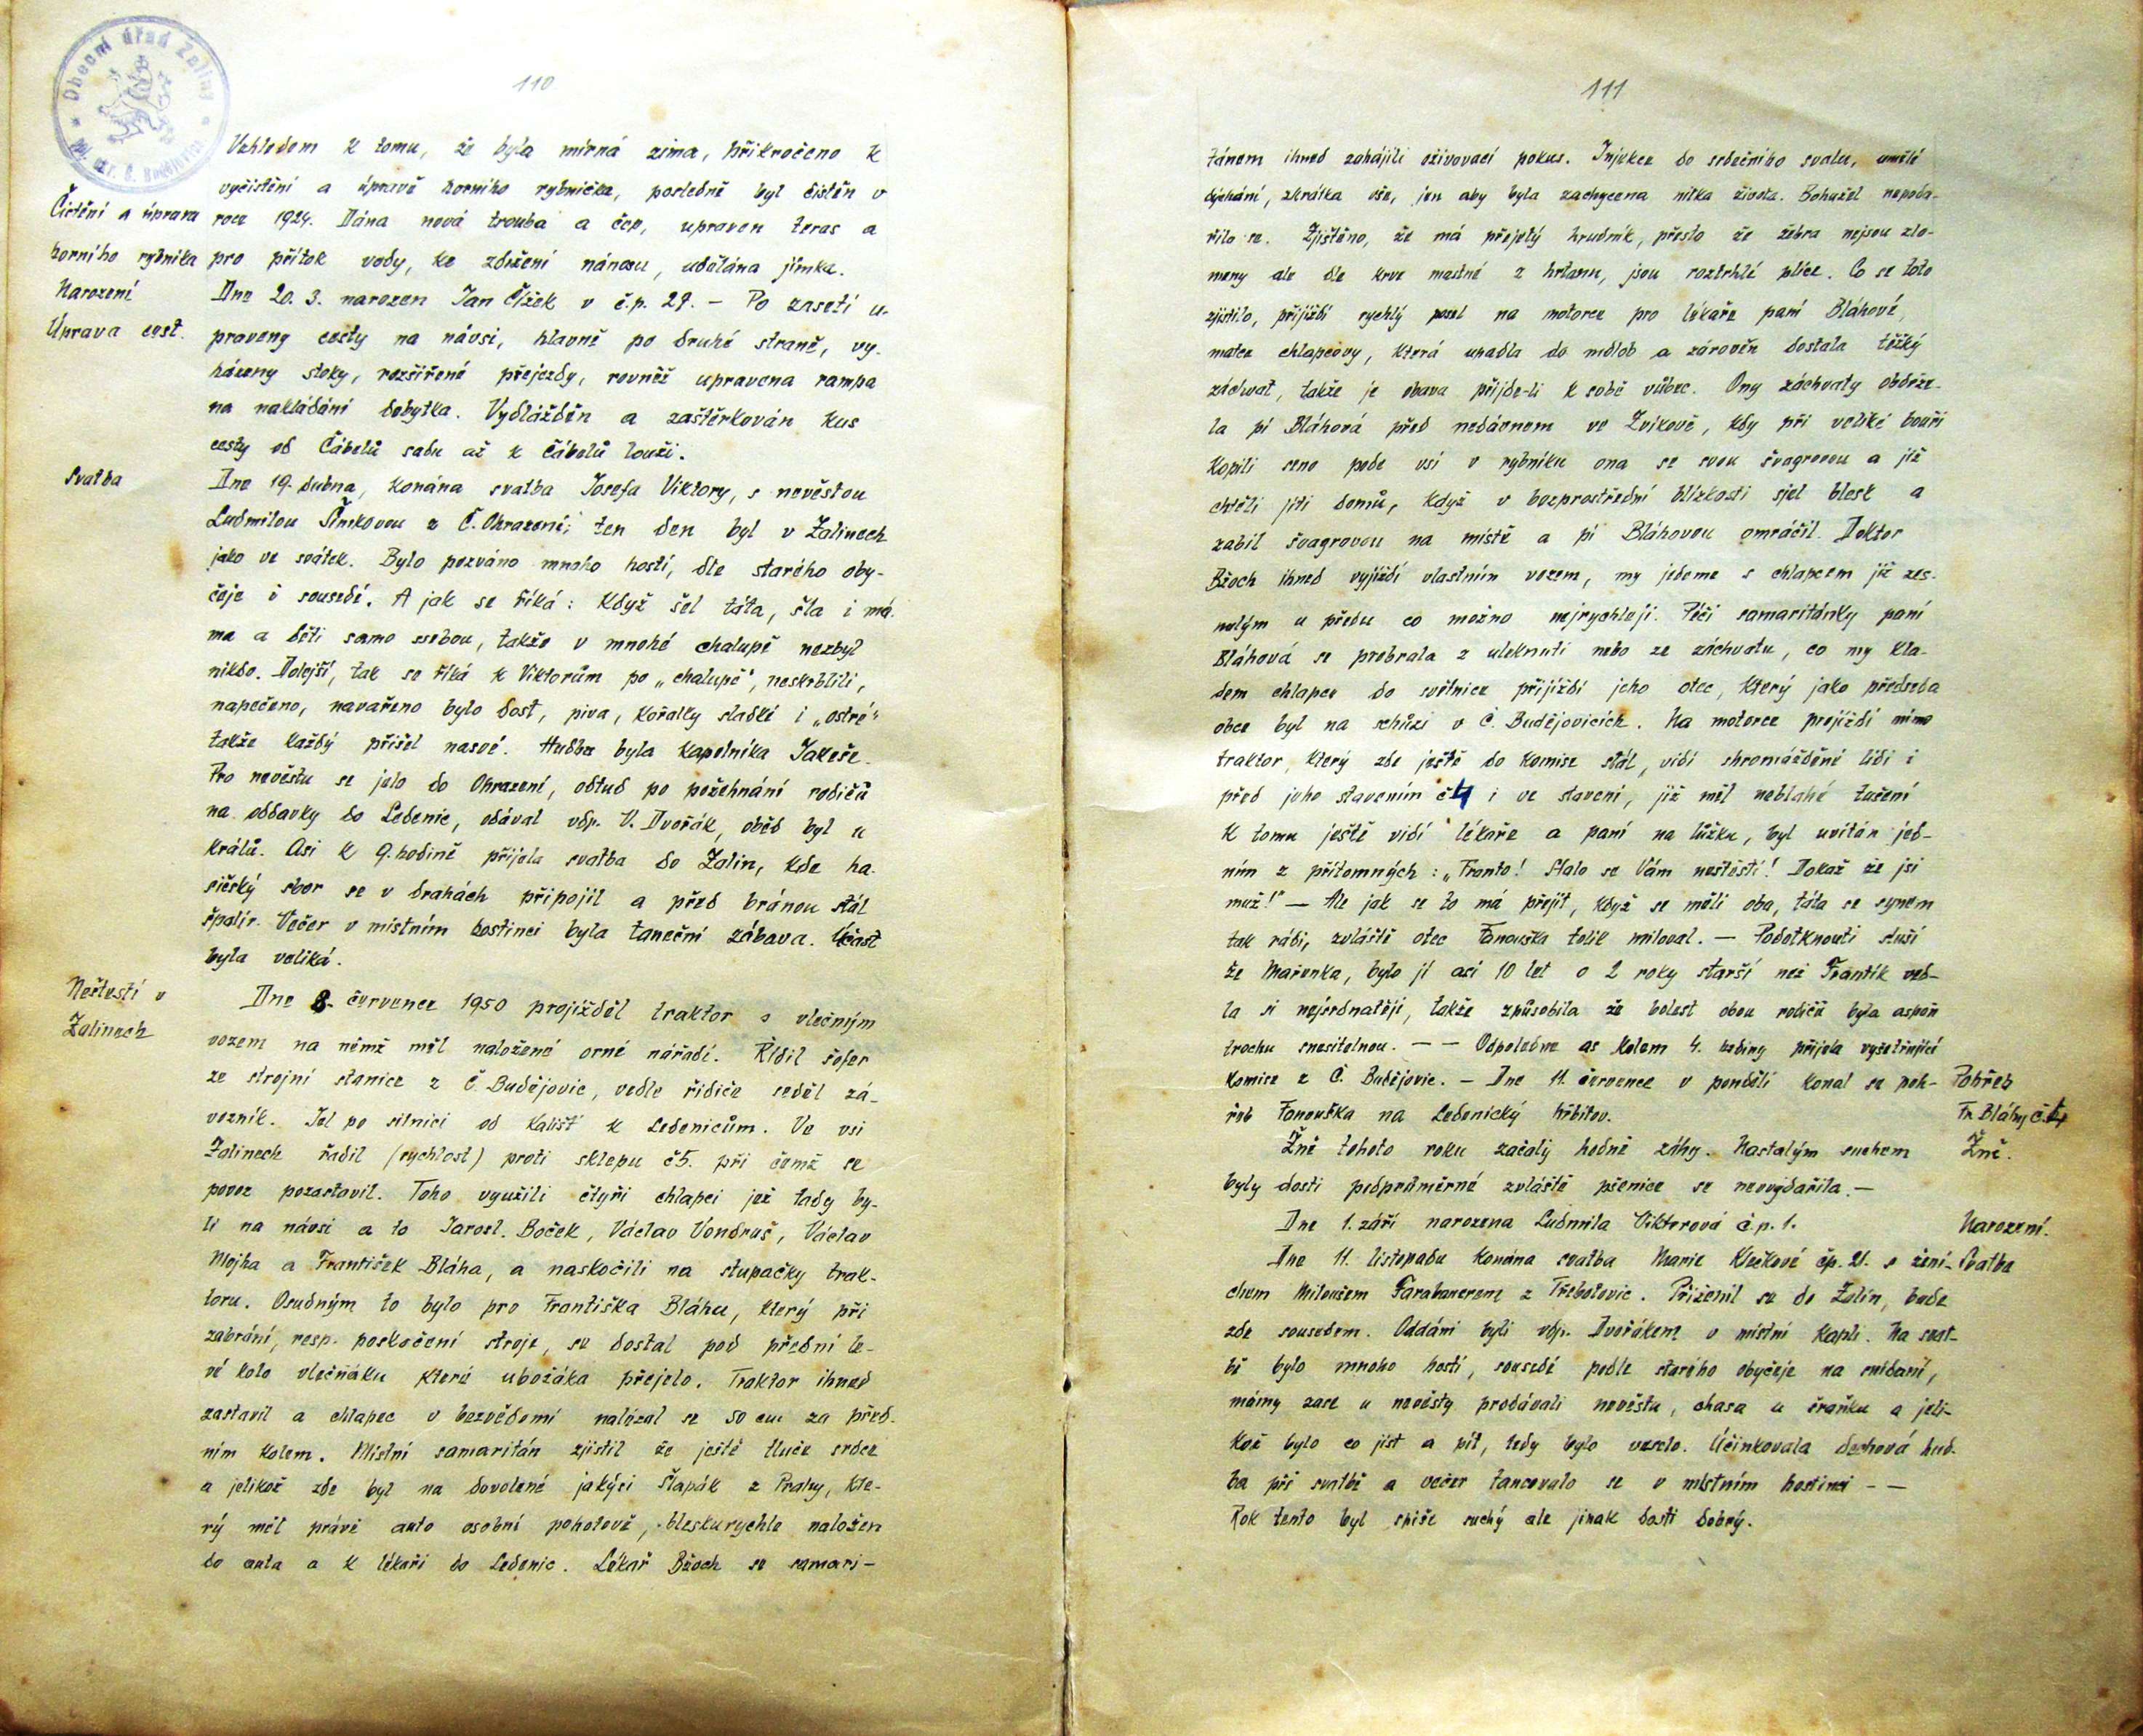 Obecní úřad Žaliny
110
Vzhledem k tomu, že byla mírná zima, přikročeno k
vyčistění a úpravě horního rybníčka, posledně byl čistěn v
Čistění a úprava
roce 1924. Dána nová trouba a čep, upraven taras a
horního rybníka
pro přítok vody, ke zdržení nánosu, udělána jímka.
Narození
Dne 20. 3. narozen Jan Čížek v č.p. 27. – Po zasetí u-
Úprava cest.
praveny cesty na návsi, hlavně po druhé straně, vy-
házeny stoky, rozšířené přejezdy, rovněž upravena rampa
na nakládání dobytka. Vydlážděn a zaštěrkován kus
cesty od Čábelů sadu až k Čábelů louži.
Svatba
Dne 19. dubna, konána svatba Josefa Viktory, s nevěstou
Ludmilou Šimkovou z Č. Ohrazení; ten den byl v Žalinech
jako ve svátek. Bylo pozváno mnoho hostí, dle starého oby-
čeje i sousedé. A jak se říká: Když šel táta, šla i má-
ma a děti samo ssebou, takže v mnohé chalupě nezbyl
nikdo. Dolejší, tak se říká k Viktorům po „chalupě", neskrblili,
napečeno, navařeno bylo dost, piva, kořalky sladké i „ostré"
takže každý přišel nasvé. Hudba byla kapelníka Jakeše.
Pro nevěstu se jelo do Ohrazení, odtud po požehnání rodičů
na oddavky do Ledenic, odával vdp. V. Dvořák, oběd byl u
Králů. Asi k 9. hodině přijela svatba do Žalin, kde ha-
sičský sbor se v drahách připojil a před bránou stál
špalír. Večer v místním hostinci byla taneční zábava. Účast
byla veliká.
Neštestí v
Žalinech
Dne 8. července 1950 projížděl traktor s vlečným
vozem na němž měl naložené orné nářadí. Řídil šofer
ze strojní stanice z Č. Budějovic, vedle řidiče seděl zá-
vozník. Jel po silnici od Kališť k Ledenicům. Ve vsi
Žalinech řadil (rychlost) proti sklepu č5. při čemž se
povoz pozastavil. Toho využili čtyři chlapci jež tady by-
li na návsi a to Jarosl. Boček, Václav Vondruš, Václav
Mojha a František Bláha, a naskočili na stupačky trak-
toru. Osudným to bylo pro Františka Bláhu, který při
zabrání, resp. poskočení stroje, se dostal pod přední le-
vé kolo vlečňáku které ubožáka přejelo. Traktor ihned
zastavil a chlapec v bezvědomí nalézal se 50 cm za před-
ním kolem. Místní samaritán zjistil že ještě tluče srdce
a jelikož zde byl na dovolené jakýsi Šlapák z Prahy, kte-
rý měl právě auto osobní pohotově, bleskurychle naložen
do auta a k lékaři do Ledenic. Lékař Bžoch se samari-
111
tánem ihned zahájili oživovací pokus. Injekce do srdečního svalu, umělé
dýchání, zkrátka vše, jen aby byla zachycena nitka života. Bohužel nepoda-
řilo se. Zjištěno, že má přejetý hrudník, přesto že žebra nejsou zlo-
meny ale dle krve mastné z hrtanu, jsou roztrhlé plíce. Co se toto
zjistilo, přijíždí rychlý posel na motorce pro lékaře paní Bláhové,
matce chlapcovy, která upadla do mdlob a zároveň dostala těžký
záchvat, takže je obava přijde-li k sobě vůbec. Ony záchvaty obdrže-
la pí Bláhová před nedávnem ve Zvíkově, kdy při veliké bouři
kopili seno pode vsí v rybníku ona se svou švagrovou a již
chtěli jíti domů, když v bezprostřední blízkosti sjel blesk a
zabil švagrovou na místě a pí Bláhovou omráčil. Doktor
Bžoch ihned vyjíždí vlastním vozem, my jedeme s chlapcem již zes-
nulým u předu co možno nejrychleji. Péčí samaritánky paní
Bláhová se probrala z uleknutí nebo ze záchvatu, co my kla-
dem chlapce do světnice přijíždí jeho otec, který jako předseda
obce byl na schůzi v Č. Budějovicích. Na motorce projíždí mimo
traktor, který zde ještě do komise stál, vidí shromážděné lidi i
před jeho stavením č4 i ve stavení, již měl neblahé tušení
K tomu ještě vidí lékaře a paní na lůžku, byl uvítán jed-
ním z přítomných: „Franto! Stalo se Vám neštěstí! Dokaž že jsi
muž!" — Ale jak se to má přejít, když se měli oba, táta se synem
tak rádi, zvláště otec Fanouška tolik miloval. — Podotknouti sluší
že Mařenka, bylo jí asi 10 let o 2 roky starší než Frantík ved-
la si nejsrdnatěji, takže způsobila že bolest obou rodičů byla aspoň
trochu snesitelnou. — — Odpoledne as kolem 4. hodiny přijela vyšetřující
komise z Č. Budějovic. – Dne 11. července v pondělí konal se poh-
Pohřeb
řeb Fanouška na Ledenický hřbitov.
Fr. Bláhy č.4
Žně tohoto roku začaly hodně záhy. Nastalým suchem
Žně.
byly dosti podprůměrné zvláště pšenice se neovydařila. —
Dne 1. září narozena Ludmila Viktorová č.p. 1.
Narození.
Dne 11. listopadu konána svatba Marie Klečkové čp. 21. s ženi-
Svatba
chem Milošem Farabauerem z Třebotovic. Přiženil se do Žalin, bude
zde sousedem. Oddáni byli vdp. Dvořákem v místní kapli. Na svat-
bě bylo mnoho hostí, sousedé podle starého obyčeje na snídaní,
mámy zase u nevěsty prodávali nevěstu, chasa u šraňku a jeli-
kož bylo co jíst a pít, tedy bylo veselo. Účinkovala dechová hud-
ba při svatbě a večer tancovalo se v místním hostinci - —
Rok tento byl spíše suchý ale jinak dosti dobrý.